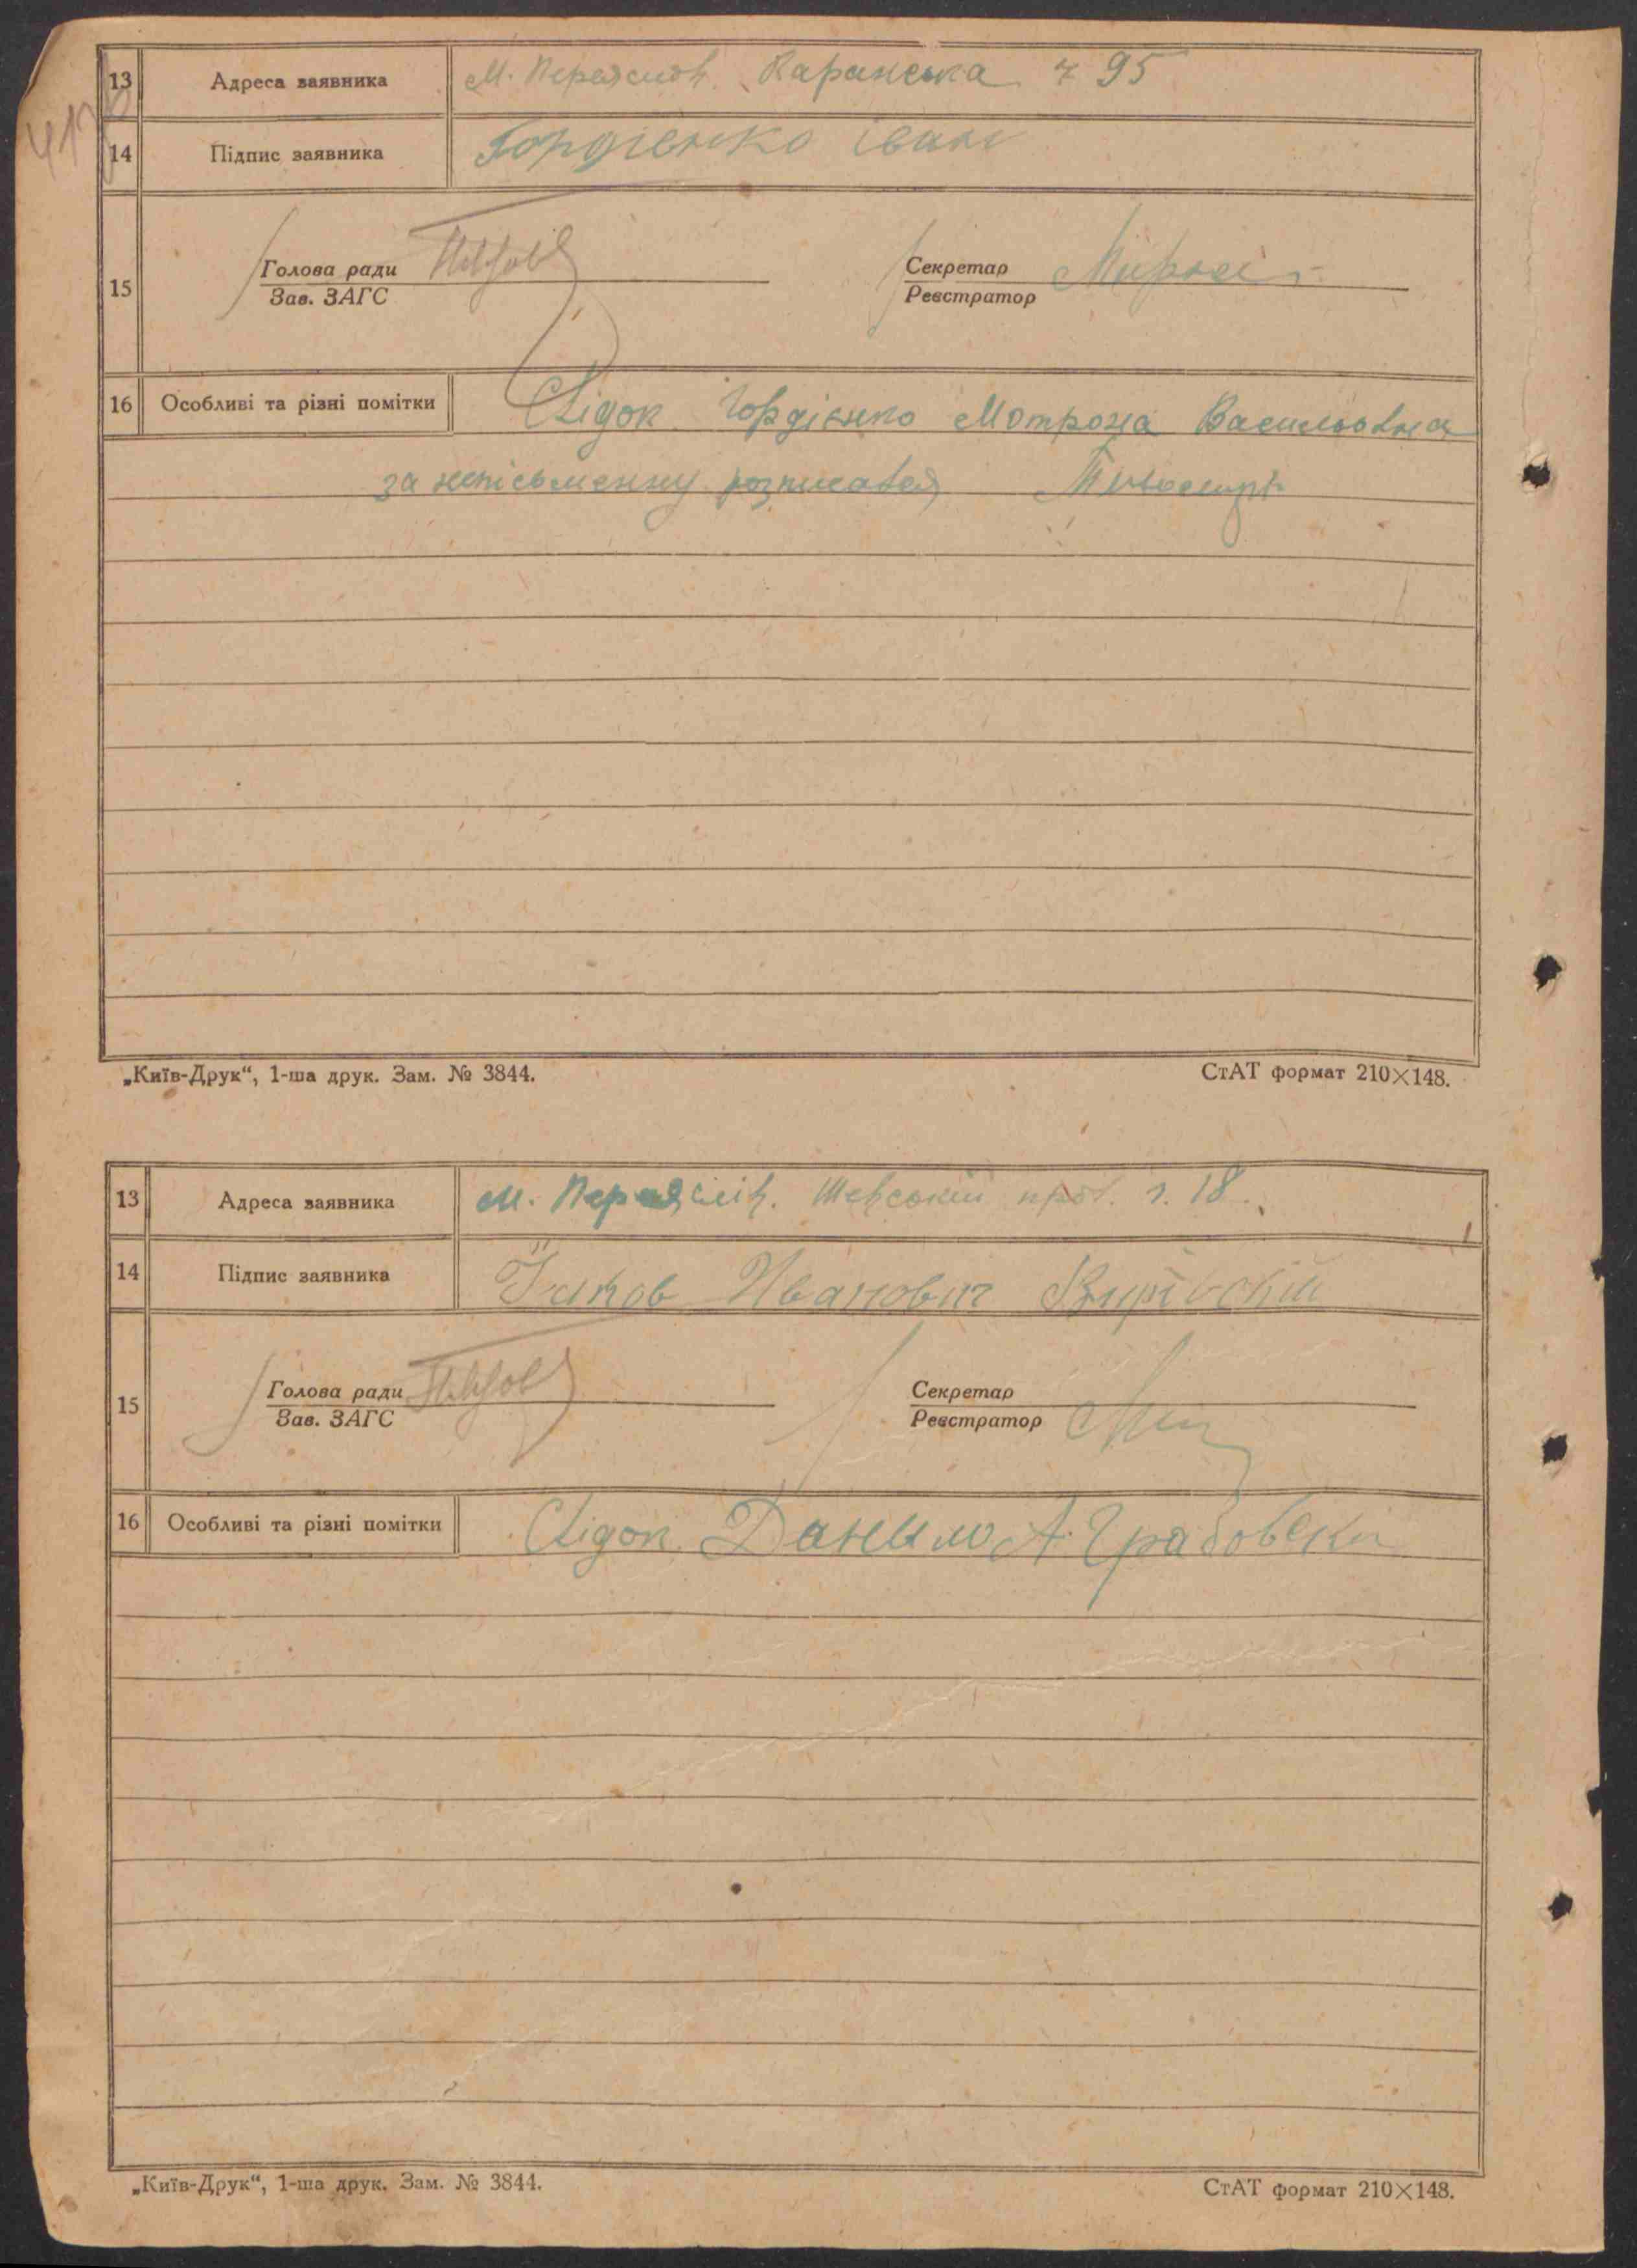 13 Адреса заявника м. Переяслов. Каранська ч 95
14 Підпис заявника Гордієнко Іван
15 Голова ради Секретар
Зав. ЗАГС Реєстратор
16 Особливі та різні помітки Свідок Гордієнко Мотрона Васильовна
за неписьменну розписався
„Київ-Друк“, 1-ша друк. Зам. № 3844. СтАТ формат 210×148.
13 Адреса заявника м. Переяслів. Шевський пров. ч. 18.
14 Підпис заявника Яков Иванович
15 Голова ради Секретар
Зав. ЗАГС Реєстратор
16 Особливі та різні помітки Свідок Данило А. Грабовски
„Київ-Друк“, 1-ша друк. Зам. № 3844. СтАТ формат 210×148.